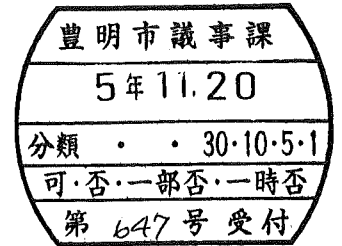 豊明市議事課
5年11.20
分類 ・ ・ 30・10・5・1
可・否・一部否・一時否
第 647 号 受付